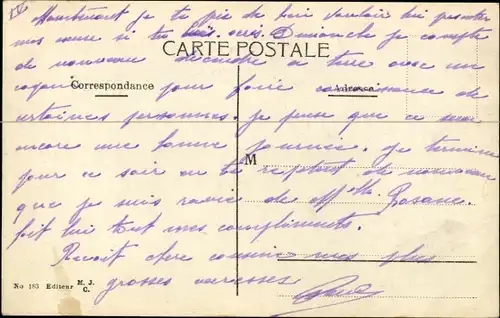 IV
Maintenant je te prie de bien vouloir lui presenter
mes si tu Dimanche je compte
CARTE POSTALE
de nouveau descendre a terre avec un
copain pour faire connaissance de
Correspondance Adresse
certaines personnes. je pense que ce sera
encore une bonne journée. Je termine
M
pour ce soir en te repetant de nouveau
que je suis ravie de Rosane.
fait lui tout mes compliments.
Recoit chere cousine mes plus
grosses caresses
No 183 Editeur M. J. C.